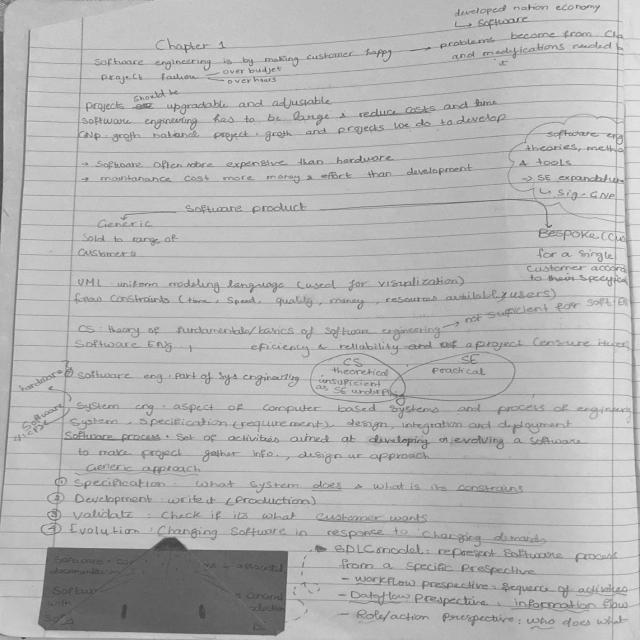 developed nation economy
↳ software
Chapter 1
software engineering is by making customer happy → problems become from
and modifications needed
project failure < over budget
over hours
it
projects should be upgradable and adjustable
software engineering has to be large & reduce costs and time
GNP: groth national project. groth and projects we do to develop
software eng
theories,
& tools
→ SE
↳ sig. GNP
→ software often more expensive than hardware
→ maintanance cost more money & effort than development
Software product
Generic
Sold to range of
customers
Bespoke
for a single
customer
to their
UML: uniform modeling language (used for visualization)
constraints (time, speed, quality, money, resources available, users)
CS: theory of fundamentals/basics of software engineering → not sufficient for soft.
Software Eng. , efficiency & reliability and a project (ensure
hardware
software eng: part of sys engineering
CS
theoretical
insuficient
as SE
SE
practical
Software
System eng: aspect of computer based systems and process of
System, specification (requirement), design, integration and deployment
Software process: Set of activities aimed at developing or evolving a software
to make project gather info., design ur approach
Generic approach
① Specification: what system does & what is its constrains
② Development: write it (production)
③ Validate: Check if its what customer wants
④ Evolution: Changing Software in response to changing demands
SDLC model: represent software process
from a specific prespective
- workflow prespective: sequence of activities
- Dataflow prespective: information flow
- Role/action prespective: who does what